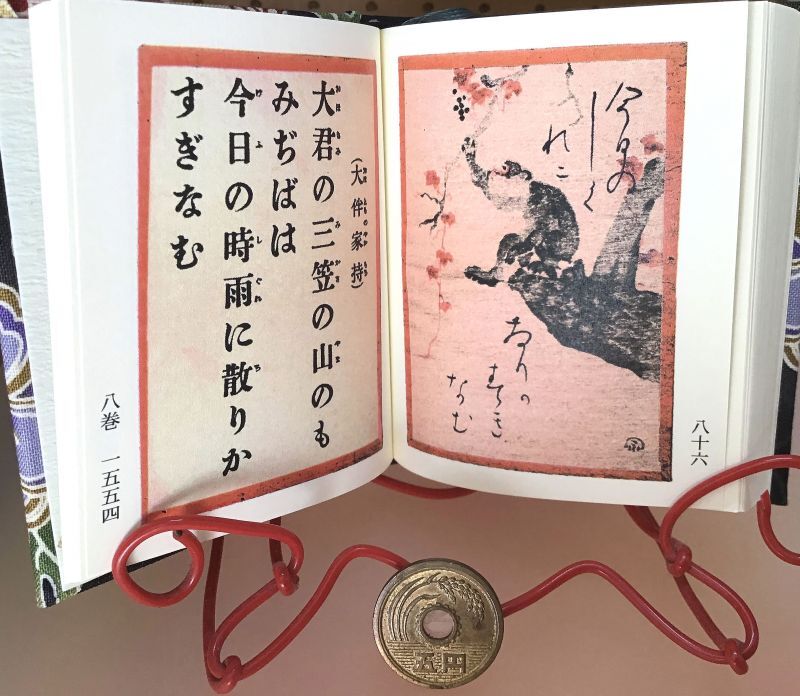 今日の
しく
れに
りか
すき
なむ
八十六
(大伴家持)
大君の三笠の山のも
みぢばは
今日の時雨に散りか
すぎなむ
八巻 一五五四
五円